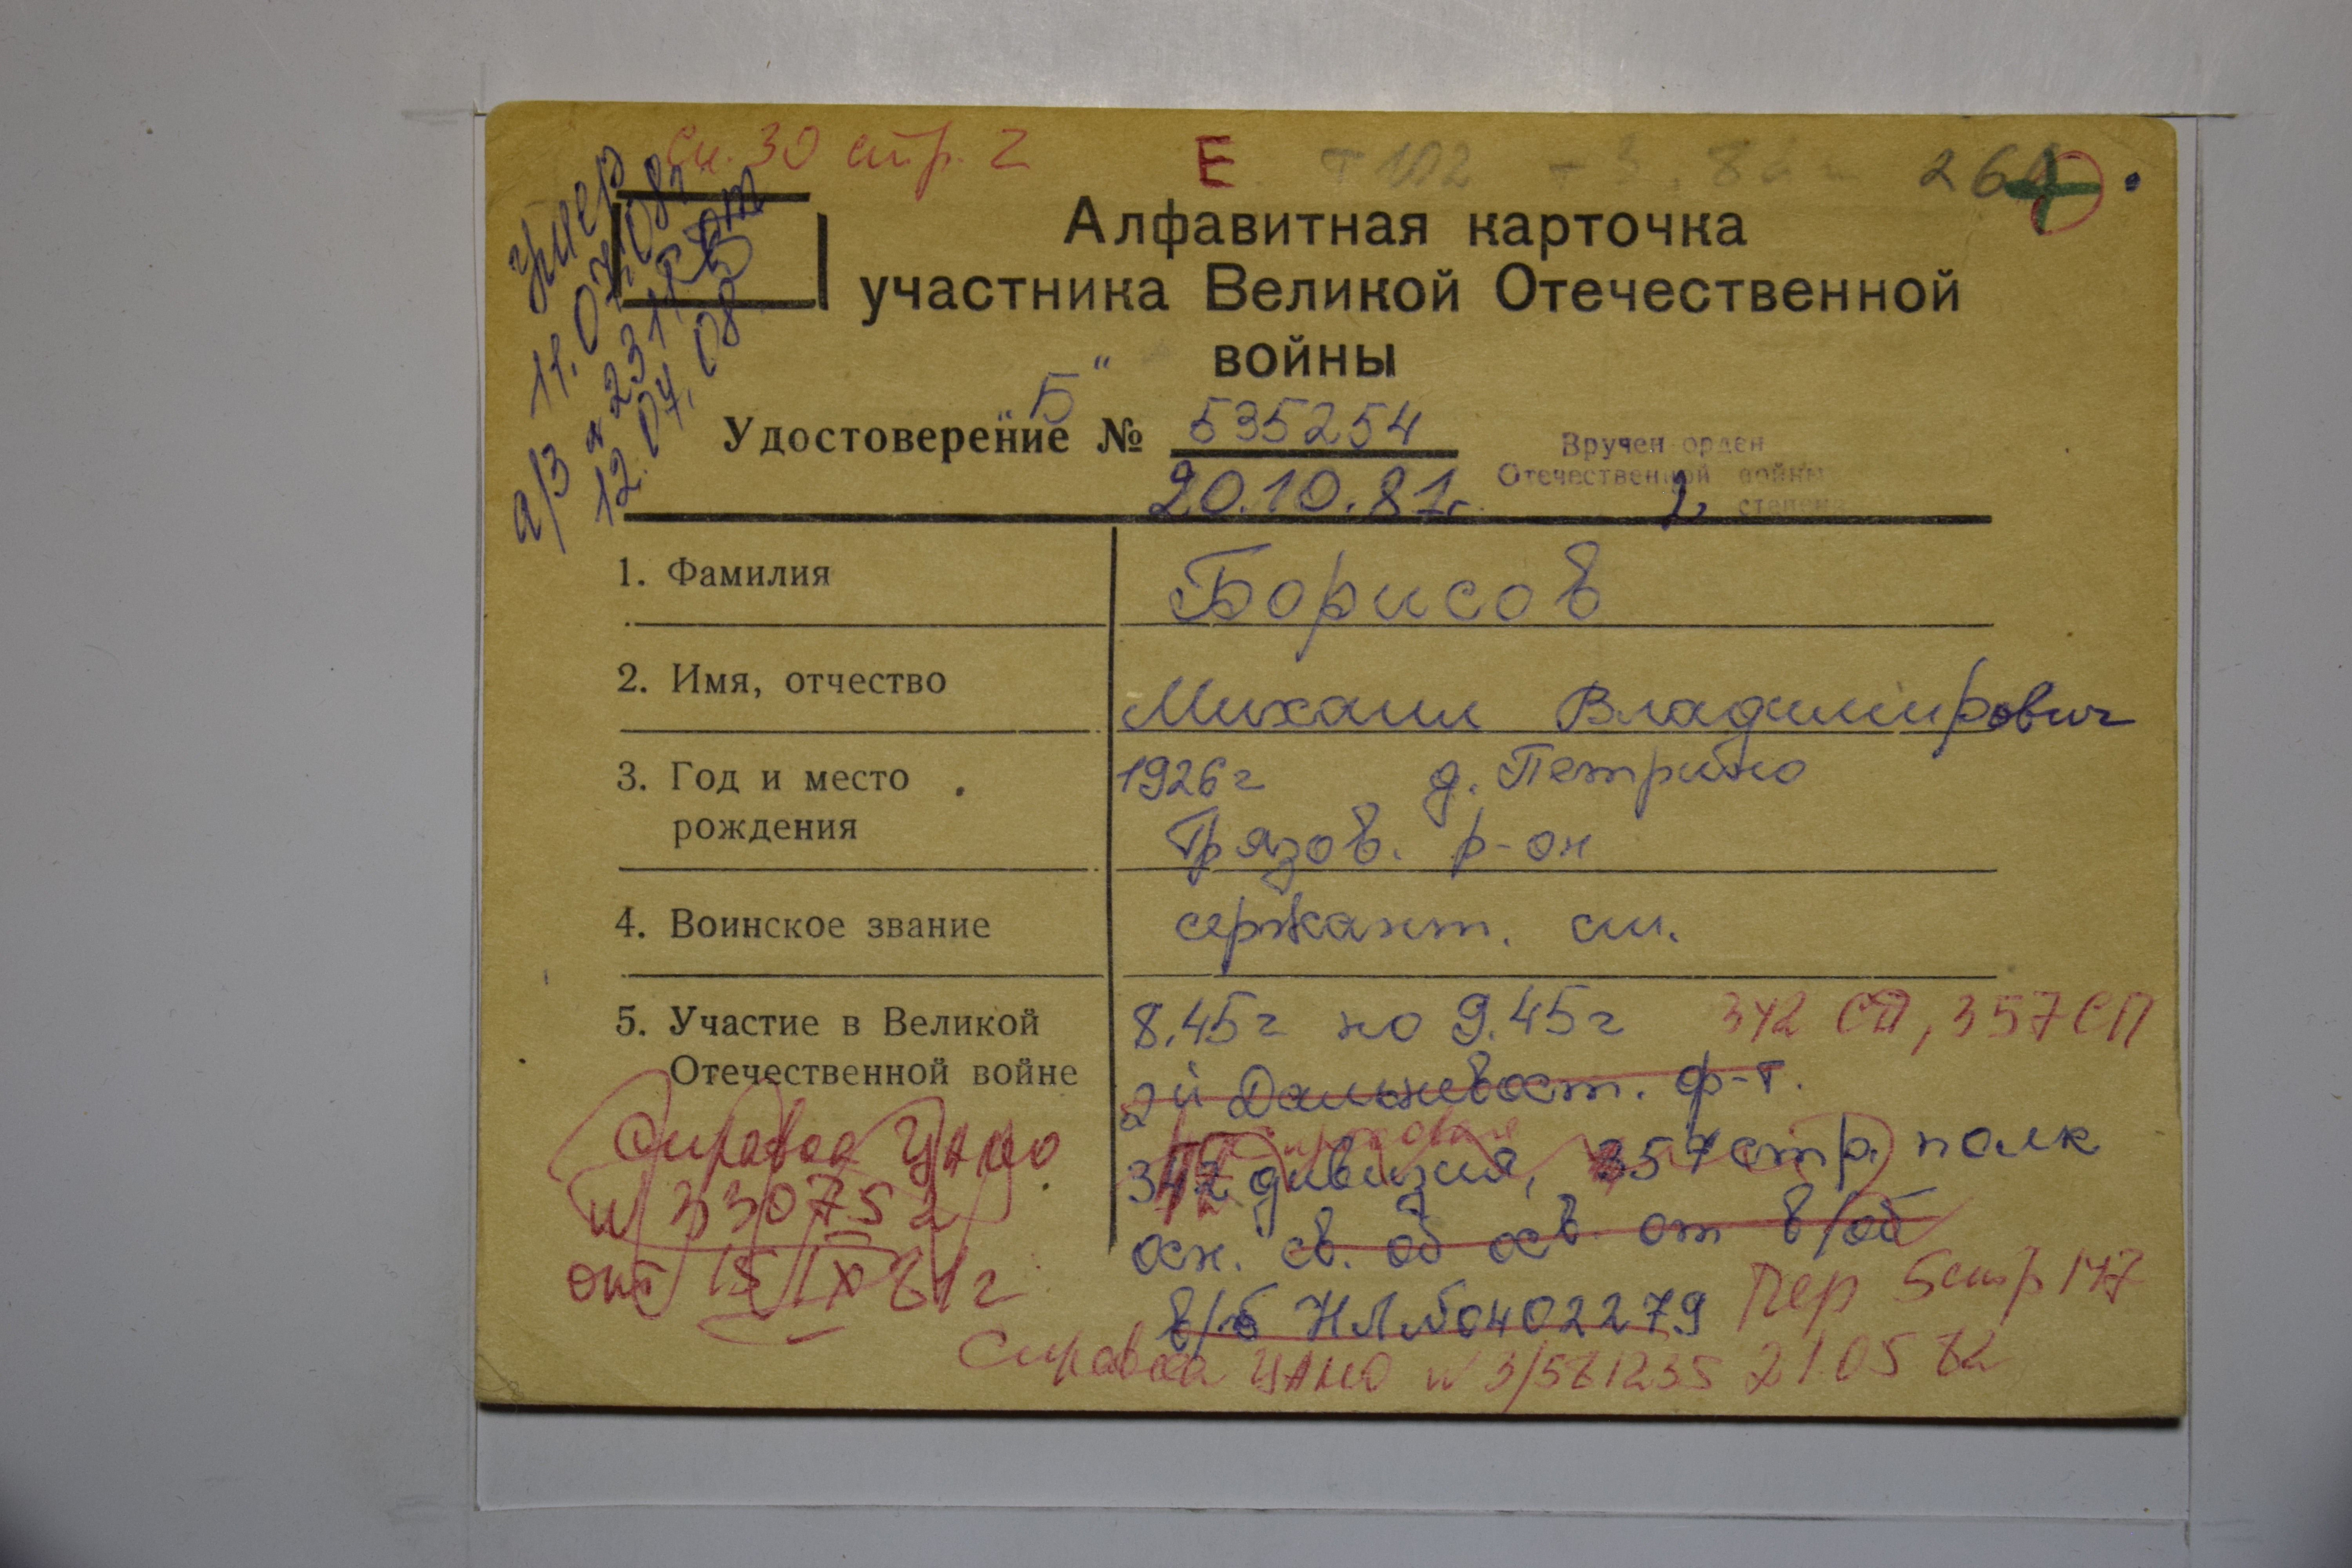 Сп. 30 стр. 2
Е
умер
11.07.08г
а/з № 231 от
12.04.08
Алфавитная карточка
участника Великой Отечественной
войны
"Б"
Удостоверение № 535254
20.10.81г.
Вручен орден
Отечественной войны
2 степени
1. Фамилия Борисов
2. Имя, отчество Михаил Владимирович
3. Год и место 1926г д. Петрино
рождения Грязов. р-он
4. Воинское звание сержант. ст.
5. Участие в Великой 8.45г по 9.45г 342 СД, 357 СП
Отечественной войне 2й Дальневост. ф-т.
342 дивизия, 357 стр. полк
осн. св. об осв. от в/об
в/б НЛ №0402279
Справка ЦАМО
№ 330752
от 15 IX 81г
Пер 5 стр 147
Справка ЦАМО № 3/561235 21.05 82